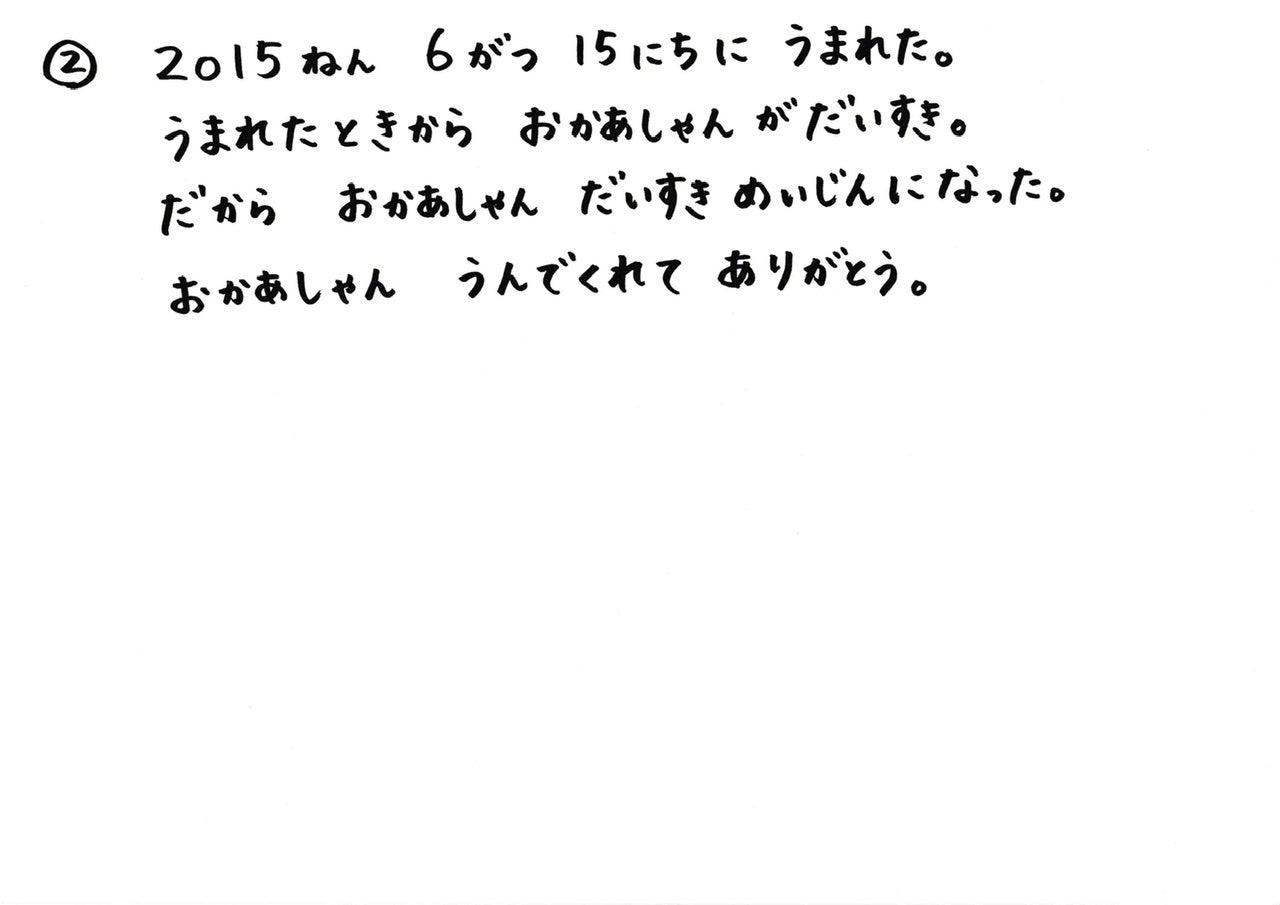 ② 2015ねん 6がつ 15にちに うまれた。
うまれたときから おかあしゃん がだいすき。
だから おかあしゃん だいすき めいじんに なった。
おかあしゃん うんでくれて ありがとう。